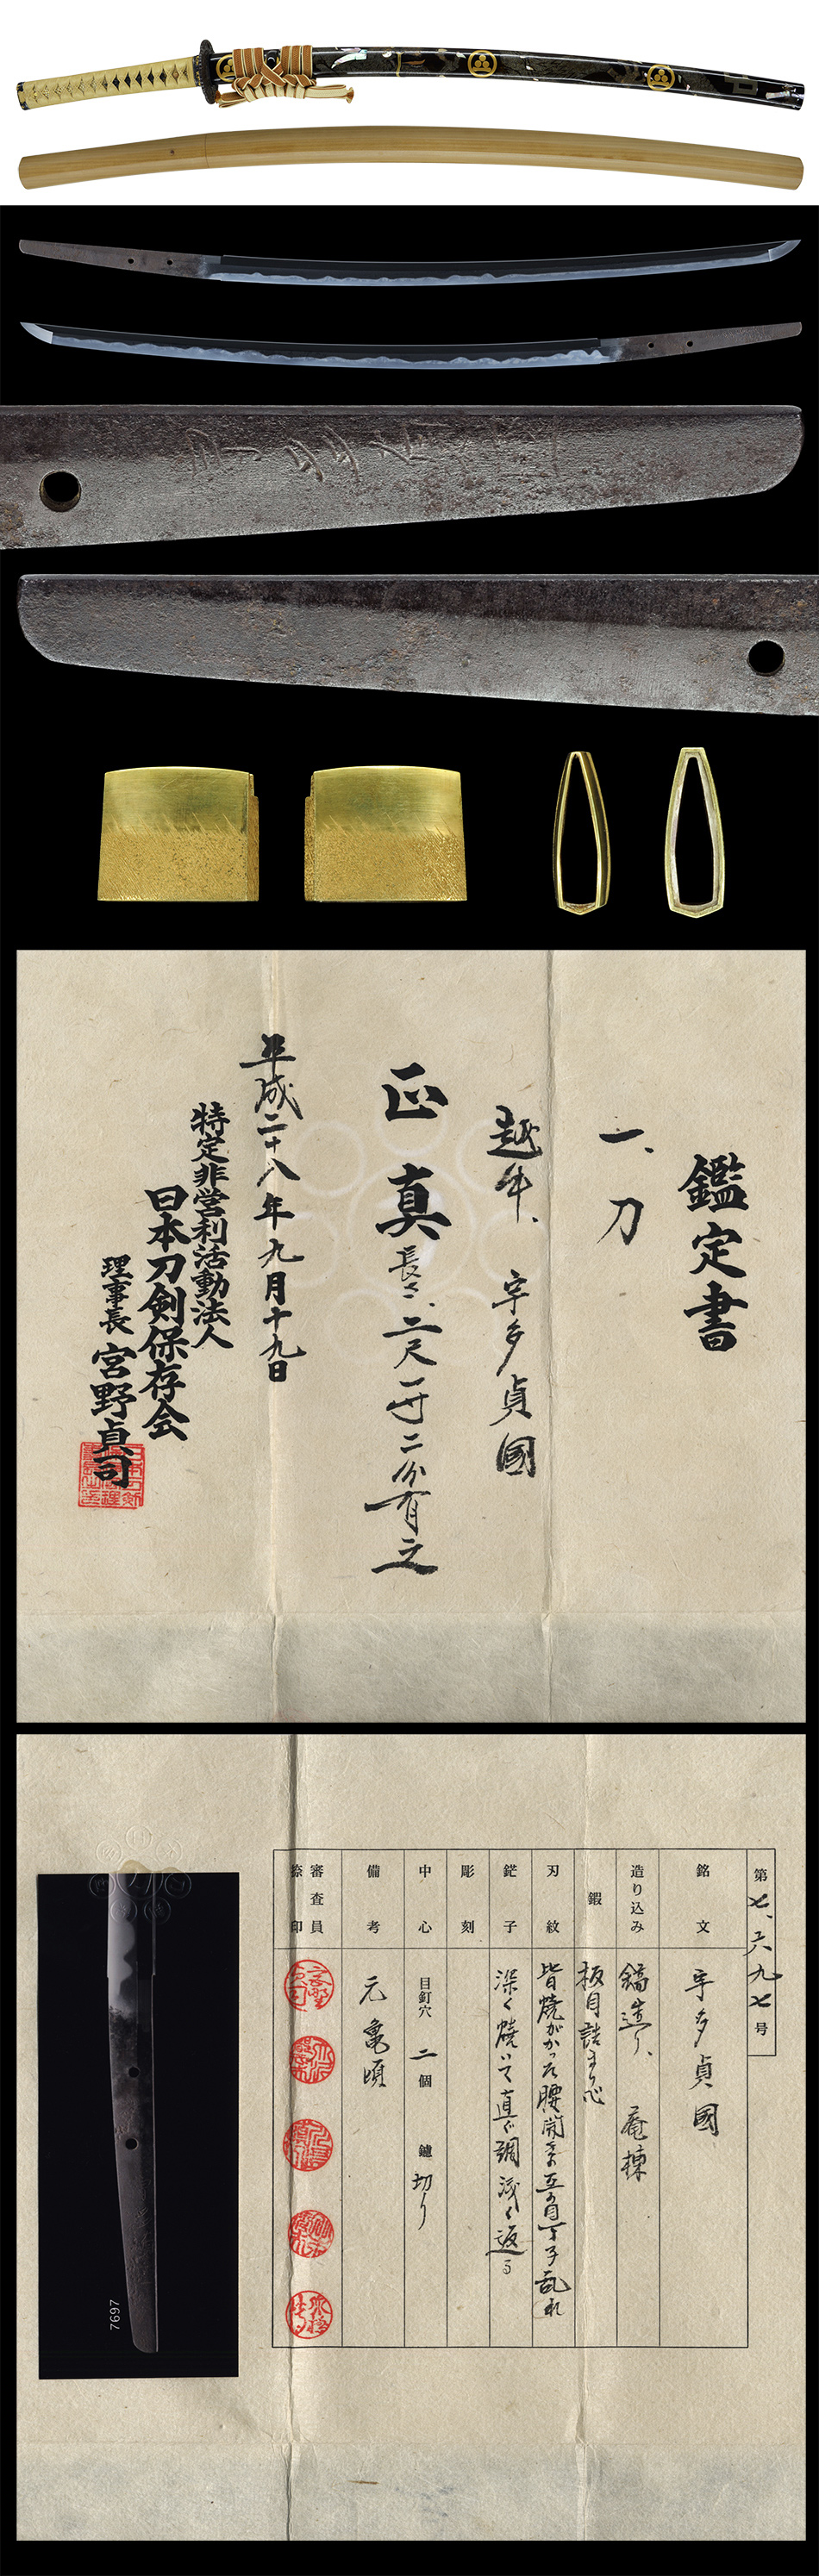 鑑定書
一、刀
越中、宇多貞國
正真 長さ、二尺一寸二分有之
平成二十八年九月十九日
特定非営利活動法人
日本刀剣保存会
理事長 宮野貞司
第七、六九七号
銘文 宇多貞國
造り込み 鎬造り、庵棟
鍛 板目詰まり心
刃紋 皆焼がかった腰開きの互の目丁子乱れ
鋩子 深く焼いて直ぐ調浅く返る
彫刻
中心 目釘穴 二個 鑢 切り
備考 元亀頃
審査員
捺印
7697